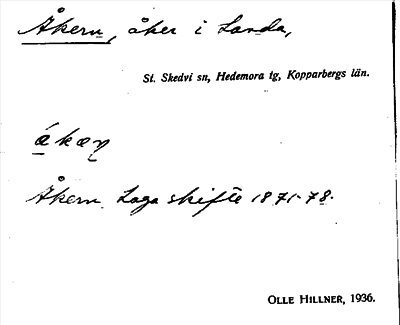 Åkern, åker i Landa,
St. Skedvi sn, Hedemora tg, Kopparbergs län.
Åkern. Laga skifte 1871-78.
OLLE HILLNER, 1936.